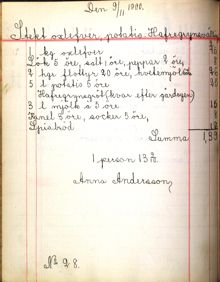 Den 9/11 1900.
Stekt oxlefver, potatis Hafregrynsgröt
1 kg oxlefver
Lök 5 öre, salt 1 öre, peppar 2 öre, 8
2 hgr flottyr 20 öre, hvetemjöl
5 l potatis 5 öre
Hafregrynsgröt (kvar efter gårdagen)
3 l mjölk à 5 öre
Kanel 5 öre, socker 5 öre,
Spisbröd
Summa 1,99
1 person 13 öre
Anna Andersson,
No 28.